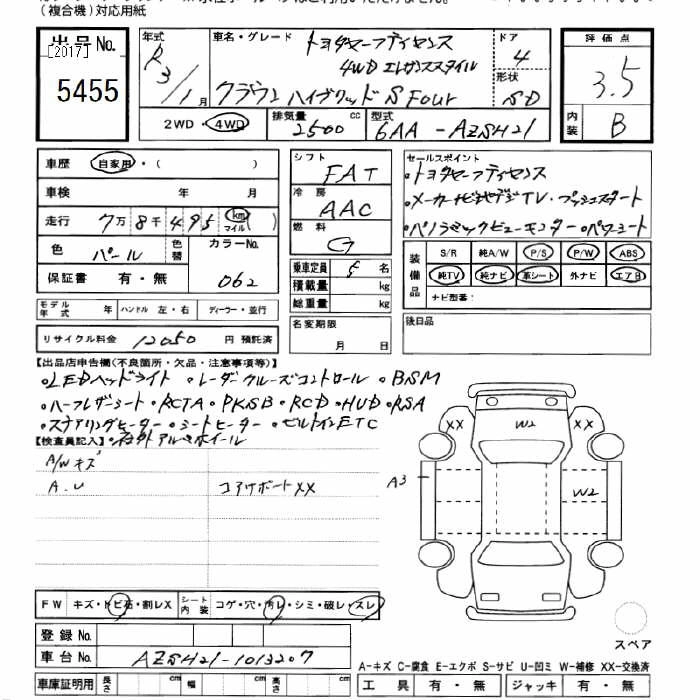 (複合機)対応用紙
出品No.
[2017]
5455
年式
R3/1月
車名・グレード
トヨタセーフティセンス
4WD エレガンススタイル
クラウン ハイブリッド S Four
ドア
4
形状
SD
評価点
3.5
内装
B
2WD・4WD
排気量
2500 cc
型式
6AA-AZSH21
車歴 自家用・( )
車検 年 月
走行 7万8千495 km マイル ( )
色 パール 色替 カラーNo. 062
保証書 有・無
モデル年式 年 ハンドル 左・右 ディーラー・並行
リサイクル料金 12050 円 預託済
シフト
FAT
冷房
AAC
燃料
G
乗車定員 5 名
積載量 kg
総重量 kg
名変期限
月 日
セールスポイント
・トヨタセーフティセンス
・メーカーナビ地デジTV・プッシュスタート
・パノラミックビューモニター・パワーシート
装備品
S/R 純A/W P/S P/W ABS
純TV 純ナビ 革シート 外ナビ エアB
ナビ型番:
後日品
【出品店申告欄(不良箇所・欠品・注意事項等)】
・LEDヘッドライト ・レーダークルーズコントロール ・BSM
・ハーフレザーシート ・RCTA ・PKSB ・RCD ・HUD ・RSA
・ステアリングヒーター ・シートヒーター ・ビルトインETC
【検査員記入】 ・社外アルミホイール
A/Wキズ
A.U コアサポートXX
XX W2 XX
A3
W2
FW キズ・トビ石・割レX シート内装 コゲ・穴・汚レ・シミ・破レ・スレ
登録No.
車台No. AZSH21-1013207
車庫証明用 長さ cm 幅 cm 高さ cm
スペア
A-キズ C-腐食 E-エクボ S-サビ U-凹ミ W-補修 XX-交換済
工具 有・無 ジャッキ 有・無